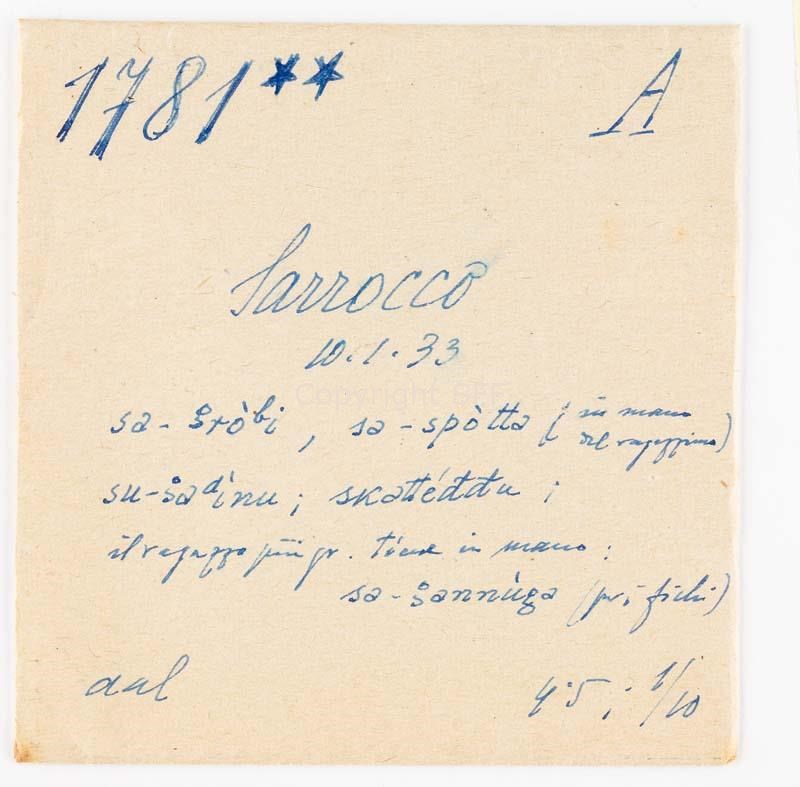 1781** A
Sarrocco
10.1.33
sa-gròbi, sa-spòtta (in mano
del ragazzino)
su-gadínu; skattéddu;
il ragazzo più gr. tiene in mano:
sa-gannùga (per i fichi)
4·5; 1/10